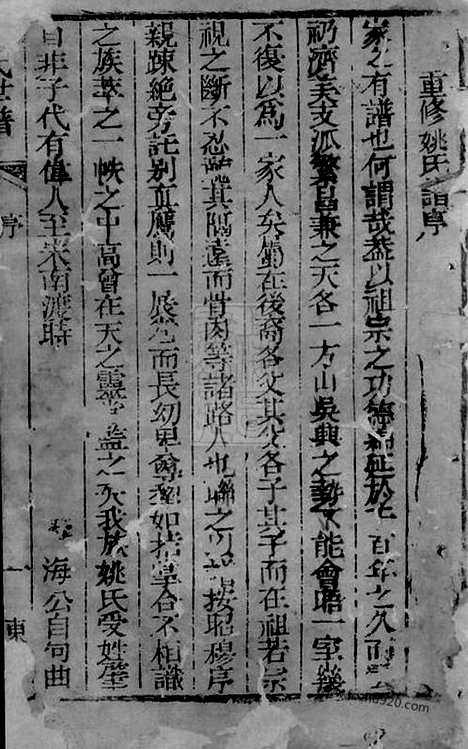 重修姚氏譜序
家之有譜也何謂哉葢以祖宗之功德綿延於百年之久而
礽濟美支派繁昌兼之天各一方山吳興之勢不能會晤一室幾
不復以為一家人矣屬在後裔各父其父各子其子而在祖若宗
視之斷不忍其隔遠而骨肉等諸路人也聯之以按昭穆序
親踈絶旁託别血屬則一展卷而長幼卑尊犂如指掌合不相識
之族萃之一帙之中高曾在天之靈葢之矣我族姚氏受姓
自非子代有偉人至宋南渡時海公自句曲
氏世譜
序
一
東